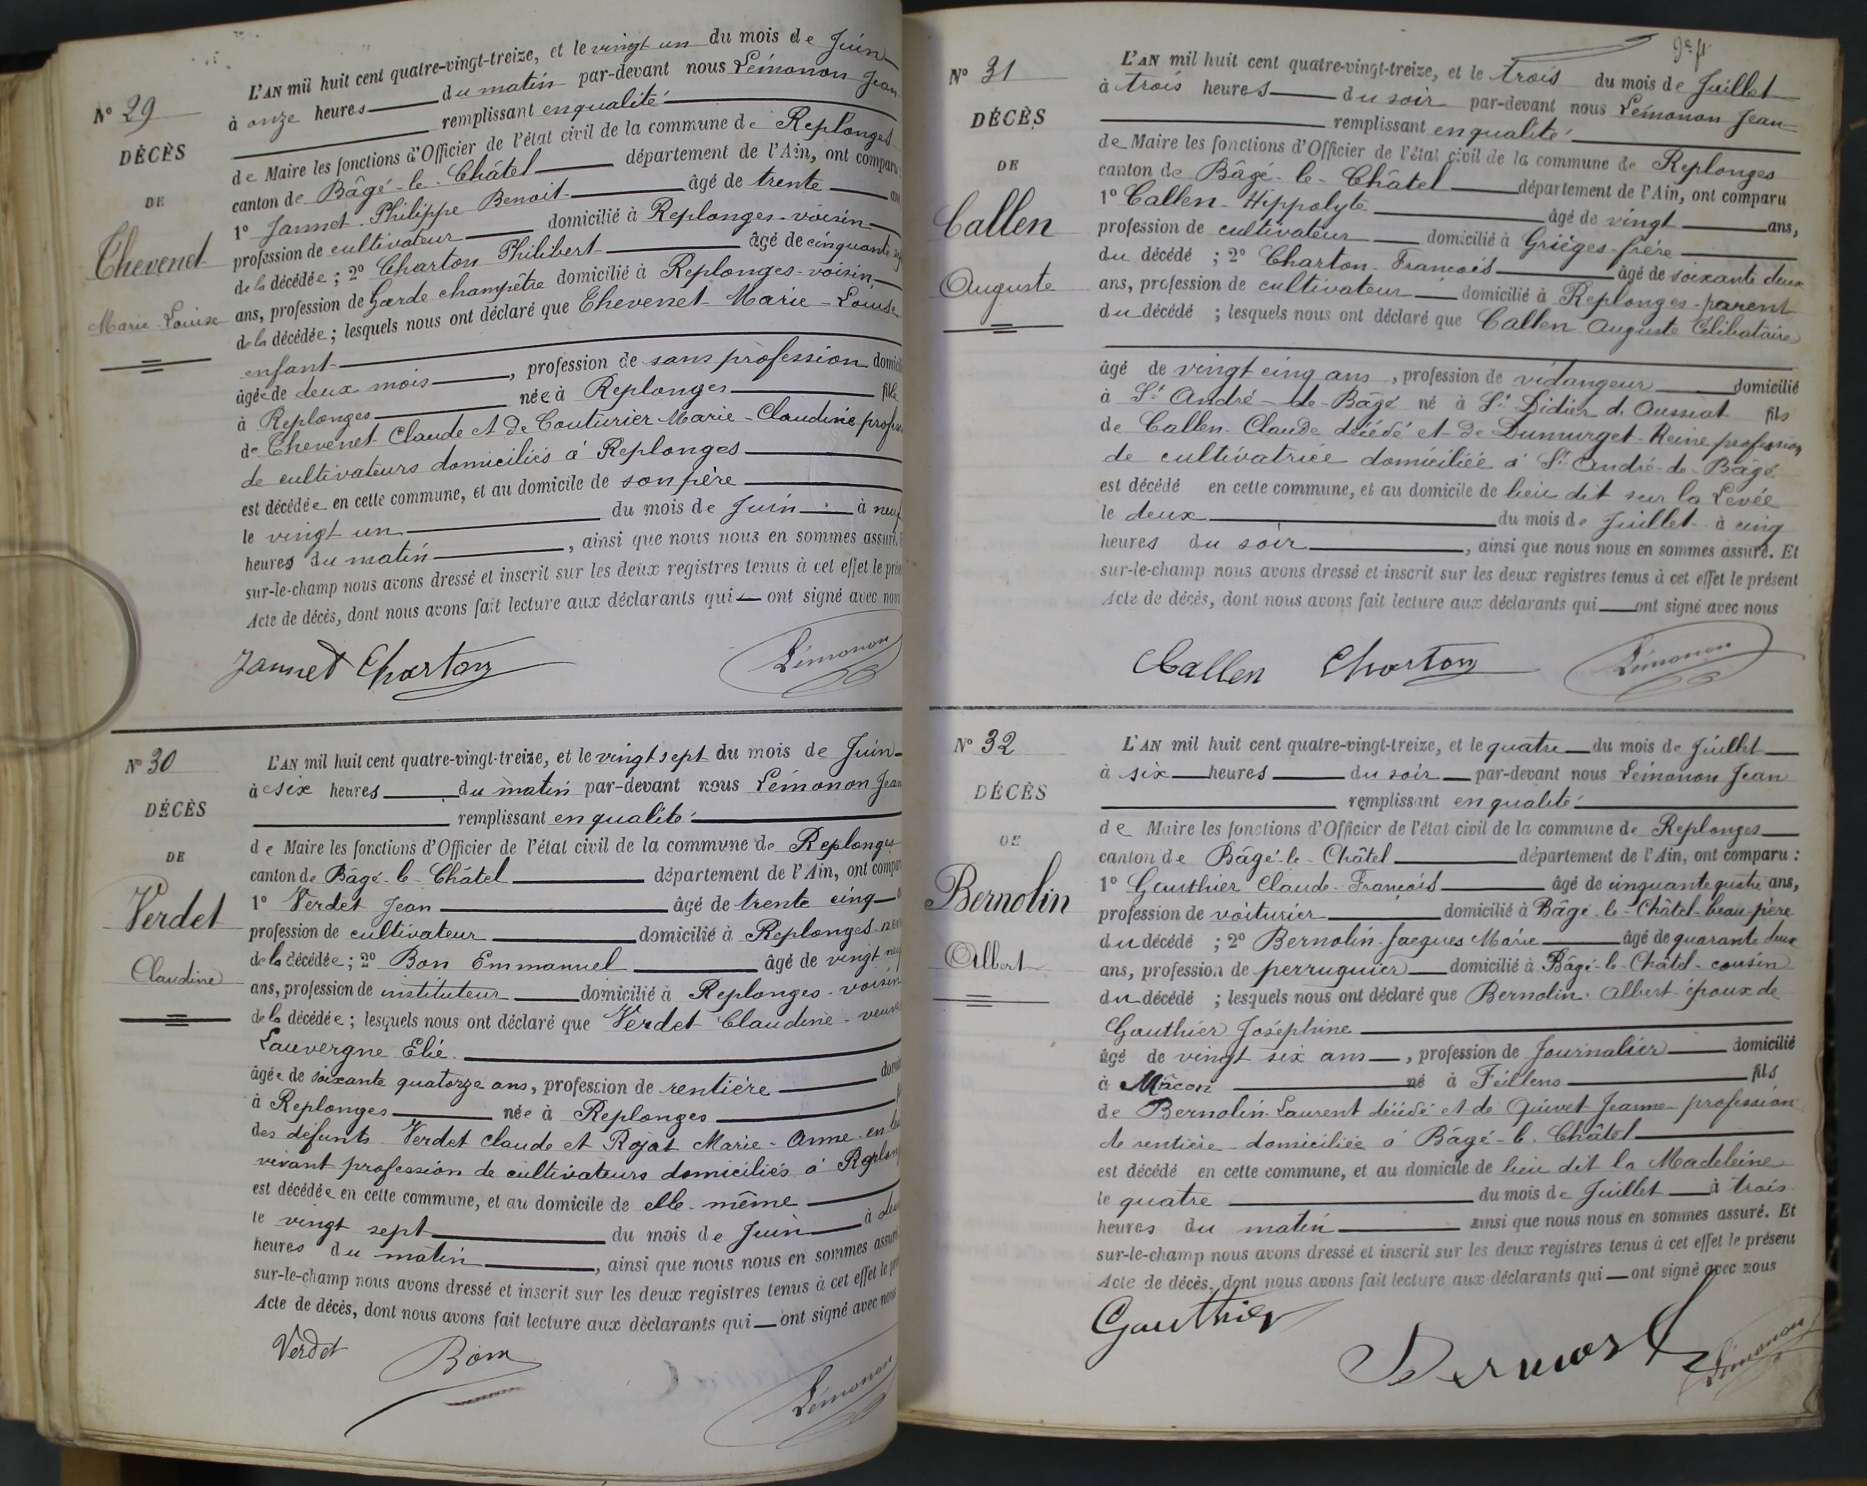 N° 29
DÉCÈS
DE
Thevenet
Marie-Louise
L'AN mil huit cent quatre-vingt-treize, et le vingt un du mois de Juin
à onze heures du matin par-devant nous Lémonon Jean
remplissant en qualité
de Maire les fonctions d'Officier de l'état civil de la commune de Replonges
canton de Bâgé-le-Châtel département de l'Ain, ont comparu
1° Jannet Philippe Benoit âgé de trente ans
profession de cultivateur domicilié à Replonges-voisin
de la décédée ; 2° Charton Philibert âgé de cinquante
ans, profession de Garde champêtre domicilié à Replonges-voisin
de la décédée ; lesquels nous ont déclaré que Thevenet Marie-Louise
enfant
âgée de deux mois, profession de sans profession domici
à Replonges née à Replonges fille
de Thevenet Claude et de Couturier Marie-Claudine profes
de cultivateurs domiciliés à Replonges
est décédée en cette commune, et au domicile de son père
le vingt un du mois de Juin à neuf
heures du matin, ainsi que nous nous en sommes assuré.
sur-le-champ nous avons dressé et inscrit sur les deux registres tenus à cet effet le prés
Acte de décès, dont nous avons fait lecture aux déclarants qui ont signé avec nous
Jannet Charton Lémonon
N° 30
DÉCÈS
DE
Verdet
Claudine
L'AN mil huit cent quatre-vingt-treize, et le vingt sept du mois de Juin
à six heures du matin par-devant nous Lémonon Jean
remplissant en qualité
de Maire les fonctions d'Officier de l'état civil de la commune de Replonges
canton de Bâgé-le-Châtel département de l'Ain, ont compar
1° Verdet Jean âgé de trente cinq
profession de cultivateur domicilié à Replonges-neve
de la décédée ; 2° Bon Emmanuel âgé de vingt neuf
ans, profession de instituteur domicilié à Replonges-voisin
de la décédée ; lesquels nous ont déclaré que Verdet Claudine-veuve
Lauvergne Elie
âgée de soixante quatorze ans, profession de rentière domi
à Replonges née à Replonges
des défunts Verdet Claude et Rojat Marie-Anne en leur
vivant profession de cultivateurs domiciliés à Replong
est décédée en cette commune, et au domicile de elle-même
le vingt sept du mois de Juin à deux
heures du matin, ainsi que nous nous en sommes assuré
sur-le-champ nous avons dressé et inscrit sur les deux registres tenus à cet effet le pré
Acte de décès, dont nous avons fait lecture aux déclarants qui ont signé avec nous
Verdet Bon Lémonon
N° 31
DÉCÈS
DE
Callen
Auguste
L'AN mil huit cent quatre-vingt-treize, et le trois du mois de Juillet
à trois heures du soir par-devant nous Lémonon Jean
remplissant en qualité
de Maire les fonctions d'Officier de l'état civil de la commune de Replonges
canton de Bâgé-le-Châtel département de l'Ain, ont comparu
1° Callen Hippolyte âgé de vingt ans,
profession de cultivateur domicilié à Grièges-frère
du décédé ; 2° Charton François âgé de soixante deux
ans, profession de cultivateur domicilié à Replonges-parent
du décédé ; lesquels nous ont déclaré que Callen Auguste Célibataire
âgé de vingt cinq ans, profession de vidangeur domicilié
à St André-de-Bâgé né à St Didier d'Aussiat fils
de Callen Claude décédé et de Dumurget Reine profession
de cultivatrice domiciliée à St André-de-Bâgé
est décédé en cette commune, et au domicile de lieu dit sur la Levée
le deux du mois de Juillet à cinq
heures du soir, ainsi que nous nous en sommes assuré. Et
sur-le-champ nous avons dressé et inscrit sur les deux registres tenus à cet effet le présent
Acte de décès, dont nous avons fait lecture aux déclarants qui ont signé avec nous
Callen Charton Lémonon
N° 32
DÉCÈS
DE
Bernolin
Albert
L'AN mil huit cent quatre-vingt-treize, et le quatre du mois de Juillet
à six heures du soir par-devant nous Lémonon Jean
remplissant en qualité
de Maire les fonctions d'Officier de l'état civil de la commune de Replonges
canton de Bâgé-le-Châtel département de l'Ain, ont comparu :
1° Gauthier Claude-François âgé de cinquante quatre ans,
profession de voiturier domicilié à Bâgé-le-Châtel-beau-père
du décédé ; 2° Bernolin Jacques Marie âgé de quarante deux
ans, profession de perruquier domicilié à Bâgé-le-Châtel-cousin
du décédé ; lesquels nous ont déclaré que Bernolin Albert époux de
Gauthier Joséphine
âgé de vingt six ans, profession de Journalier domicilié
à Mâcon né à Feillens fils
de Bernolin Laurent décédé et de Quivet Jeanne profession
de rentière domiciliée à Bâgé-le-Châtel
est décédé en cette commune, et au domicile de lieu dit la Madeleine
le quatre du mois de Juillet à trois
heures du matin ainsi que nous nous en sommes assuré. Et
sur-le-champ nous avons dressé et inscrit sur les deux registres tenus à cet effet le présent
Acte de décès, dont nous avons fait lecture aux déclarants qui ont signé avec nous
Gauthier Lémonon